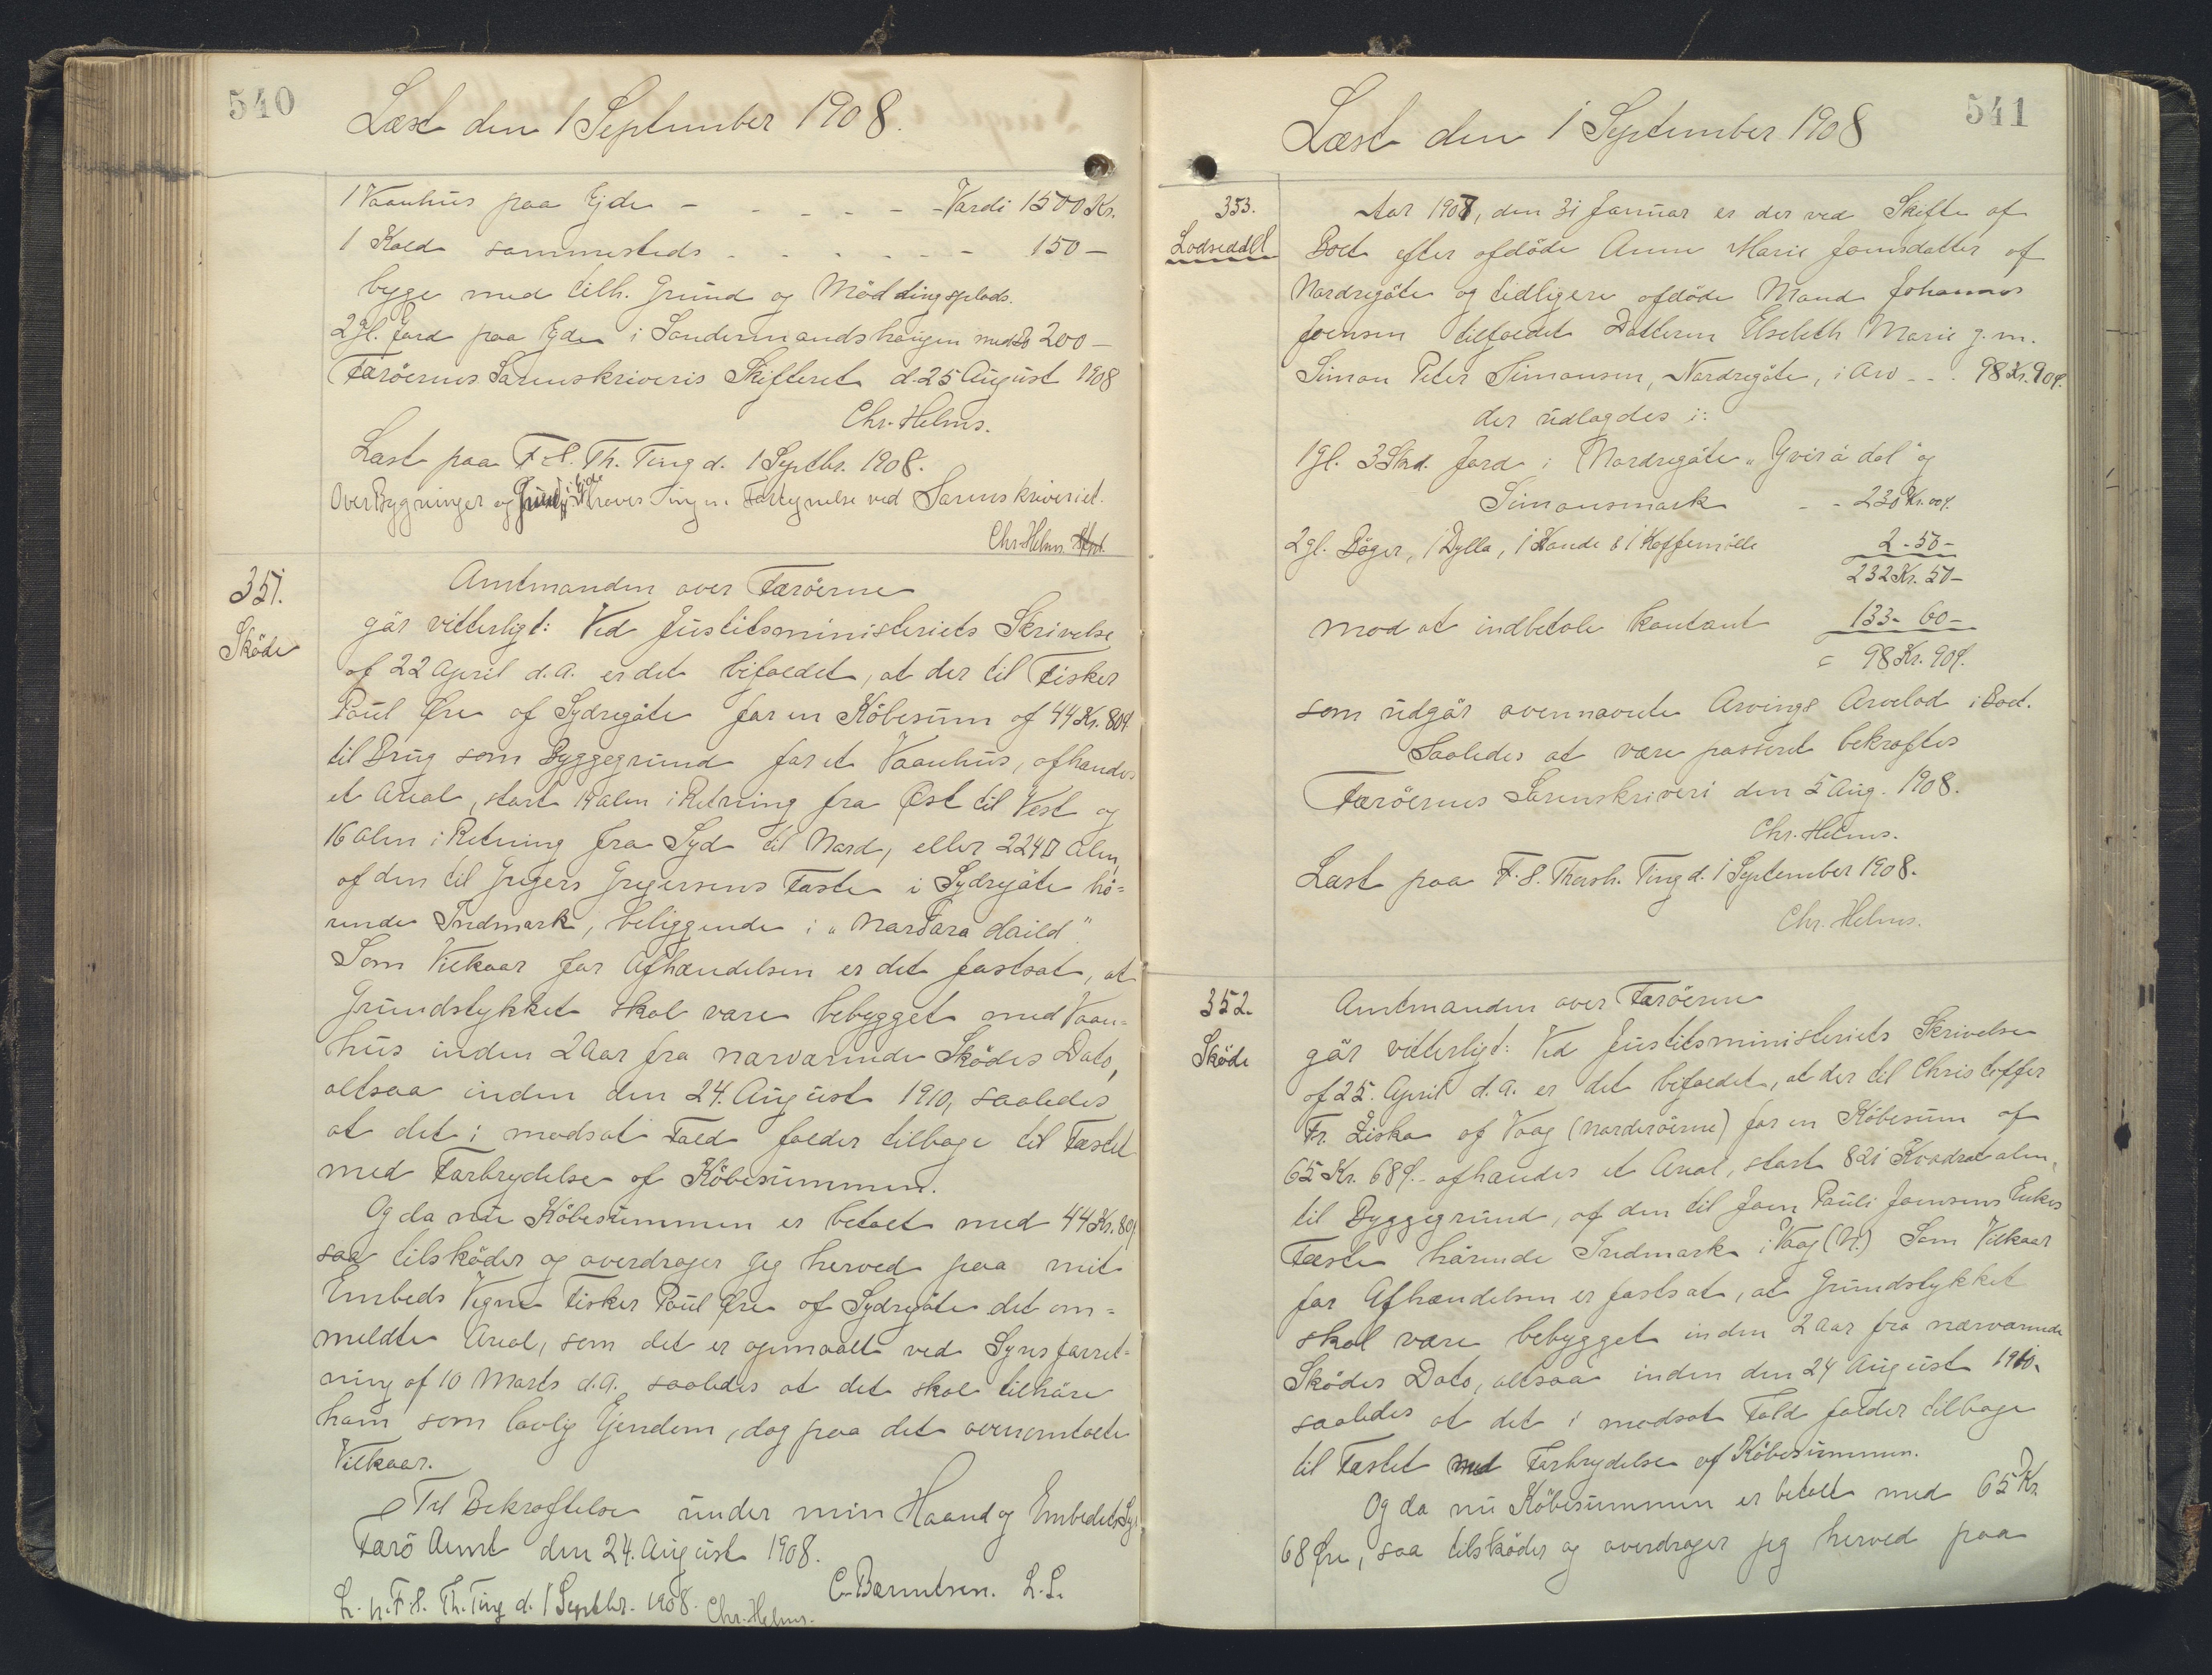 540
Læst den 1 September 1908.
1 Vaanhus paa Ejde - - - - - - Værdi 1500 Kr.
1 Kald sammesteds - - - - - - 150 -
bygge med tilh. Grund og Möddingsplads.
2 gl. Jord paa Ejde i Söndermandshaugen 200 -
Færöernes Sorenskriveris Skifteret d. 25 August 1908
Chr. Helms.
Læst paa F. S. Th. Ting d. 1 Septbr. 1908.
Over Bygninger og Grund i Ejde Forsynelse ved Sorenskriveriet.
Chr. Helms.
351.
Sköde
Amtmanden over Færöerne
gör vitterligt: Ved Justitsministeriets Skrivelse
af 22 April d.A. er det bifaldet, at der til Fisker
Poul Øre af Sydregöte for en Köbesum af 44 Kr. 80 Ø.
til Brug som Byggegrund for et Vaanhus, afhændes
et Areal, stort 14 Alen i Retning fra Øst til Vest og
16 Alen i Retning fra Syd til Nord, eller 224 □ Alen,
af den til Gregers Gregersens Fæste i Sydregöte hö=
rende Indmark, beliggende i "Nardara daild".
Som Vilkaar for Afhændelsen er det fastsat, at
Grundstykket skal være bebygget med Vaan=
hus inden 2 Aar fra nærværende Sködes Dato,
altsaa inden den 24. August 1910, saaledes
at det i modsat Fald falder tilbage til Fæstet
med Forbrydelse af Köbesummen.
Og da nu Köbesummen er betalt med 44 Kr. 80,
saa tilsköder og overdrager jeg herved paa mit
Embeds Vegne Fisker Poul Øre af Sydregöte det om=
meldte Areal, som det er opmaalt ved Synsforret=
ning af 10 Marts d.A. saaledes at det skal tilhöre
ham som lovlig Ejendom, dog paa det ovenomtalte
Vilkaar.
Til Bekræftelse under min Haand og Embedets Sgl.
Færö Amt den 24. August 1908.
C. Bærentsen. L.S.
L. p. F. S. Th. Ting d. 1 Septbr. 1908. Chr. Helms.
541
Læst den 1 September 1908
353.
Lodseddel
Aar 1907, den 31 Januar er der ved Skifte af
Boet efter afdöde Anne Marie Joensdatter af
Nordregöte og tidligere afdöde Mand Johannes
Joensen tilfaldet Datteren Elsebeth Marie g.m.
Simon Peter Simonsen, Nordregöte, i Arv - - . 98 Kr. 90 Ø.
der udlagdes i:
1 gl. 3 Skd. Jord i Nordregöte "Yvir á dal" og
Simonsmark - - 230 Kr. 00 Ø.
2 gl. Böger, 1 Dylla, 1 Kande & 1 Kaffemölle 2 - 50 -
232 Kr. 50 -
mod at indbetale kontant 133 - 60 -
= 98 Kr. 90 Ø.
som udgör ovennævnte Arvings Arvelod i Boet.
Saaledes at være passeret bekræftes
Færöernes Sorenskriveri den 5 Aug. 1908.
Chr. Helms.
Læst paa F. S. Thorsh. Ting d. 1 September 1908.
Chr. Helms.
352.
Sköde
Amtmanden over Færöerne
gör vitterligt: Ved Justitsministeriets Skrivelse
af 25. April d.A. er det bifaldet, at der til Christoffer
Fr. Ziska af Vaag (Norderöerne) for en Köbesum af
65 Kr. 68 Ø. afhændes et Areal, stort 821 Kvadrat alen,
til Byggegrund, af den til Joen Pauli Joensens Enkes
Fæste hörende Indmark i Vaag (N.) Som Vilkaar
for Afhændelsen er fastsat, at Grundstykket
skal være bebygget inden 2 Aar fra nærværende
Sködes Dato, altsaa inden den 24 August 1910.
saaledes at det i modsat Fald falder tilbage
til Fæstet med Forbrydelse af Köbesummen.
Og da nu Köbesummen er betalt med 65 Kr.
68 Øre, saa tilsköder og overdrager jeg herved paa